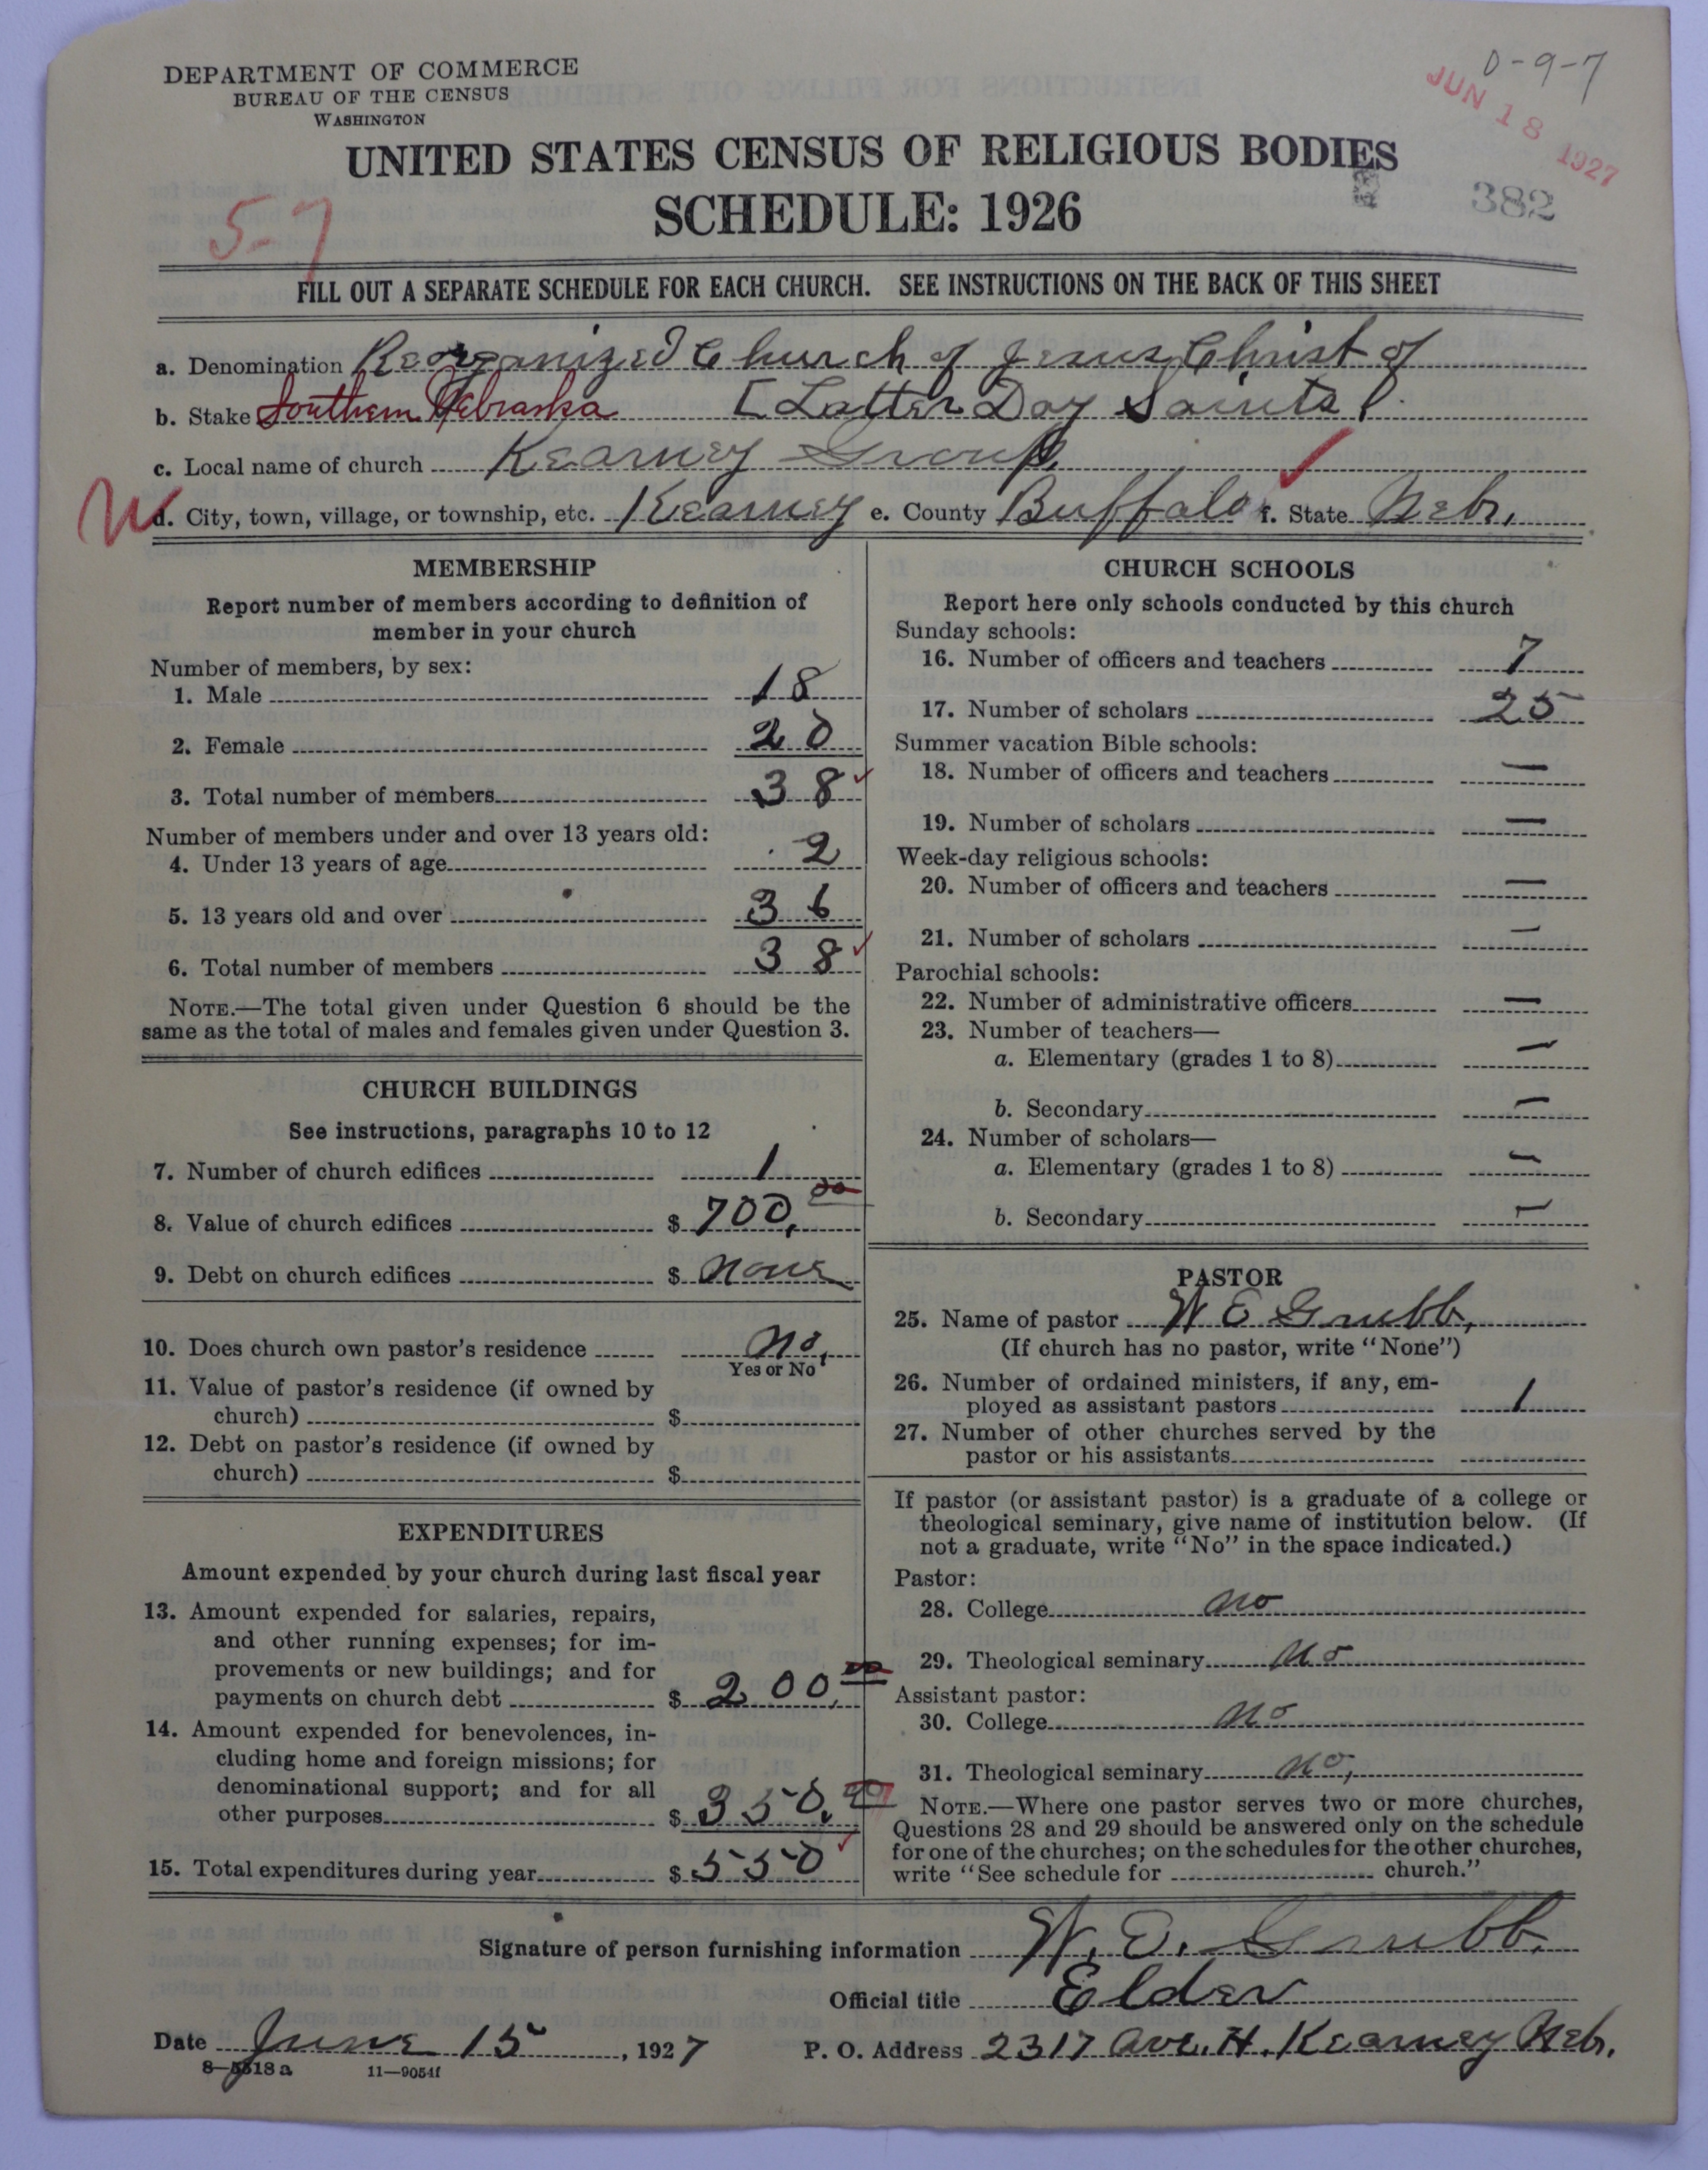 DEPARTMENT OF COMMERCE
BUREAU OF THE CENSUS
WASHINGTON
0-9-7
JUN 18 1927
UNITED STATES CENSUS OF RELIGIOUS BODIES
SCHEDULE: 1926
382
5-7
FILL OUT A SEPARATE SCHEDULE FOR EACH CHURCH. SEE INSTRUCTIONS ON THE BACK OF THIS SHEET
a. Denomination Reorganized Church of Jesus Christ of
b. Stake Southern Nebraska [Latter Day Saints].
c. Local name of church Kearney Group
W
d. City, town, village, or township, etc. Kearney e. County Buffalo f. State Nebr.
MEMBERSHIP
Report number of members according to definition of
member in your church
Number of members, by sex:
1. Male 18
2. Female 20
3. Total number of members 38
Number of members under and over 13 years old:
4. Under 13 years of age 2
5. 13 years old and over 36
6. Total number of members 38
NOTE.—The total given under Question 6 should be the
same as the total of males and females given under Question 3.
CHURCH BUILDINGS
See instructions, paragraphs 10 to 12
7. Number of church edifices 1
8. Value of church edifices $ 700.00
9. Debt on church edifices $ None
10. Does church own pastor's residence No.
Yes or No
11. Value of pastor's residence (if owned by
church) $
12. Debt on pastor's residence (if owned by
church) $
EXPENDITURES
Amount expended by your church during last fiscal year
13. Amount expended for salaries, repairs,
and other running expenses; for im-
provements or new buildings; and for
payments on church debt $ 200.00
14. Amount expended for benevolences, in-
cluding home and foreign missions; for
denominational support; and for all
other purposes $ 350.00
15. Total expenditures during year $ 550
CHURCH SCHOOLS
Report here only schools conducted by this church
Sunday schools:
16. Number of officers and teachers 7
17. Number of scholars 25
Summer vacation Bible schools:
18. Number of officers and teachers —
19. Number of scholars —
Week-day religious schools:
20. Number of officers and teachers —
21. Number of scholars —
Parochial schools:
22. Number of administrative officers —
23. Number of teachers—
a. Elementary (grades 1 to 8) —
b. Secondary —
24. Number of scholars—
a. Elementary (grades 1 to 8) —
b. Secondary —
PASTOR
25. Name of pastor W E Grubb,
(If church has no pastor, write "None")
26. Number of ordained ministers, if any, em-
ployed as assistant pastors 1
27. Number of other churches served by the
pastor or his assistants
If pastor (or assistant pastor) is a graduate of a college or
theological seminary, give name of institution below. (If
not a graduate, write "No" in the space indicated.)
Pastor:
28. College no
29. Theological seminary no
Assistant pastor:
30. College no
31. Theological seminary no,
NOTE.—Where one pastor serves two or more churches,
Questions 28 and 29 should be answered only on the schedule
for one of the churches; on the schedules for the other churches,
write "See schedule for church."
Signature of person furnishing information W. E. Grubb.
Official title Elder
Date June 15, 1927 P. O. Address 2317 Ave. H. Kearney Nebr.
8—5518 a 11—9054f